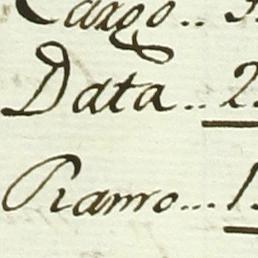 Cargo.. 3.
Data.. 2.
Ramo... 1.